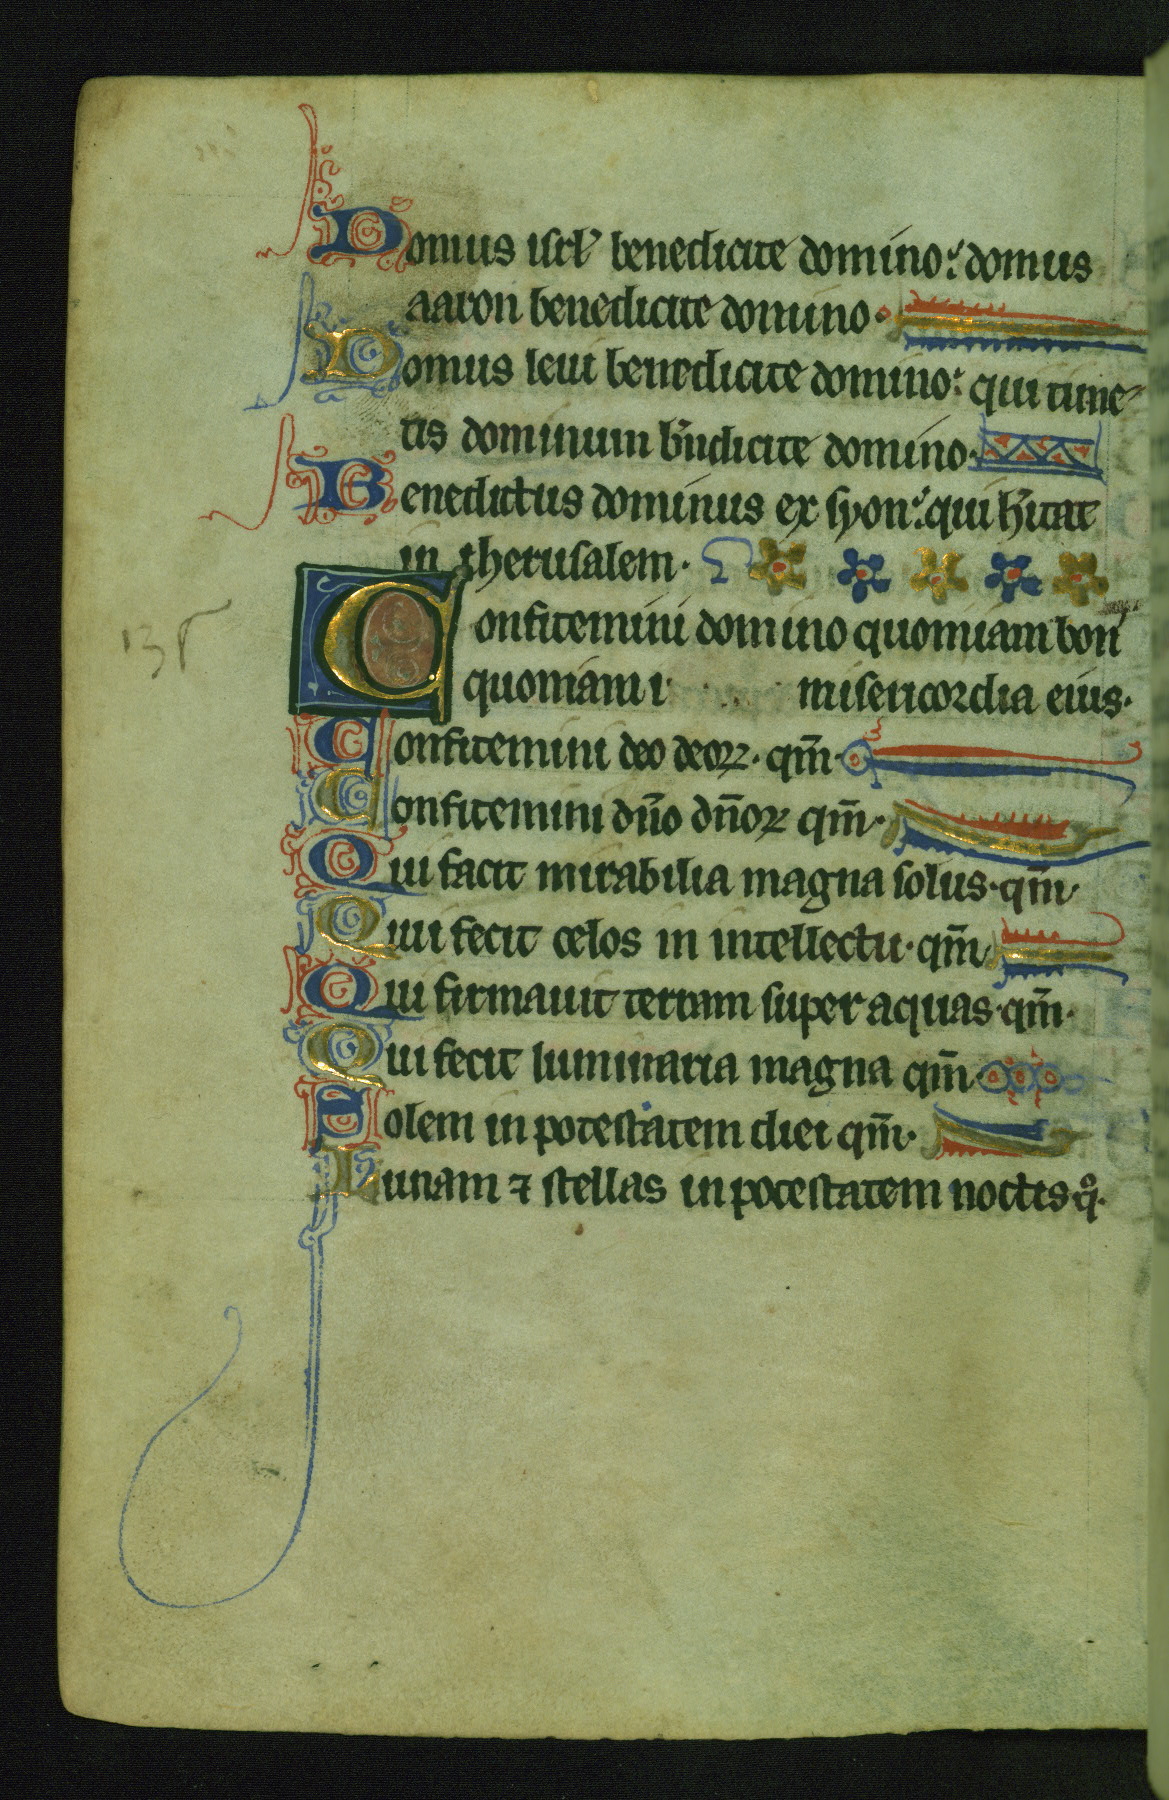 Domus isrl' benedicite domino: domus
aaron benedicite domino.
Domus leui benedicite domino: qui time
tis dominum b'ndicite domino.
Benedictus dominus ex syon: qui h'itat
in iherusalem.
Confitemini domino quoniam bon'
quoniam i misericordia eius.
Confitemini deo deoꝝ. qm̄.
Confitemini dn̄o dn̄oꝝ qm̄.
Qui facit mirabilia magna solus. qm̄.
Qui fecit celos in intellectu. qm̄.
Qui firmauit terram super aquas. qm̄.
Qui fecit luminaria magna qm̄.
Solem in potestatem diei qm̄.
Lunam ⁊ stellas in potestatem noctis qͦ.